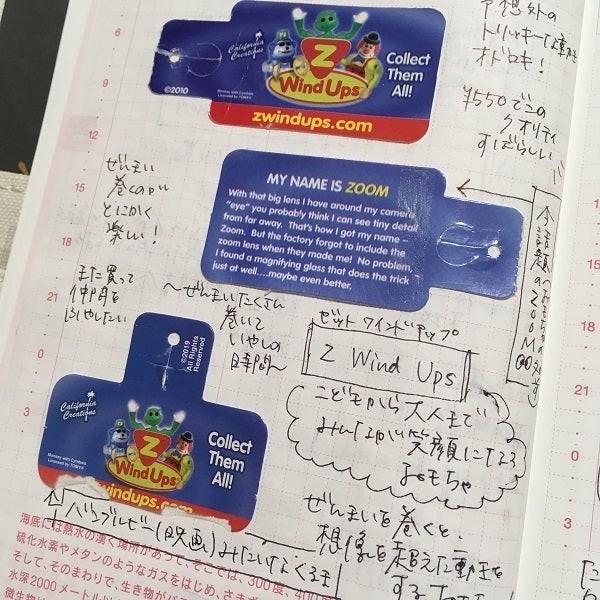 California Creations
Z
Wind Ups
Collect
Them
All!
©2010
Monkey with Cymbals
Licensed by TOMY®
zwindups.com
予想外の
トリッキーな動きに
オドロキ!
¥550でこの
クオリティ
すばらしい
6
9
12
15
18
21
0
3
ぜんまい
巻くのが
とにかく
楽しい!
MY NAME IS ZOOM
With that big lens I have around my camera
"eye" you probably think I can see tiny detail
from far away. That's how I got my name –
Zoom. But the factory forgot to include the
zoom lens when they made me! No problem,
I found a magnifying glass that does the trick
just as well....maybe even better.
また買って
仲間を
ふやしたい
〜ぜんまいたくさん
巻いて
いやしの
時間〜
ゼット ワインドアップ
Z Wind Ups
こどもから大人まで
みんなが笑顔になる
おもちゃ
©2019
All Rights
Reserved
California Creations
Z
Wind Ups
Collect
Them
All!
Monkey with Cymbals
Licensed by TOMY®
windups.com
バンブルビー(映画)みたいな
ぜんまいを巻くと、
想像を超えた動きを
する
海底には熱水の湧く場所があって、そこでは、300度、400
硫化水素やメタンのようなガスをはじめ、さま
そして、そのまわりで、生き物が
水深2000メートル以
微生物
21
0
3